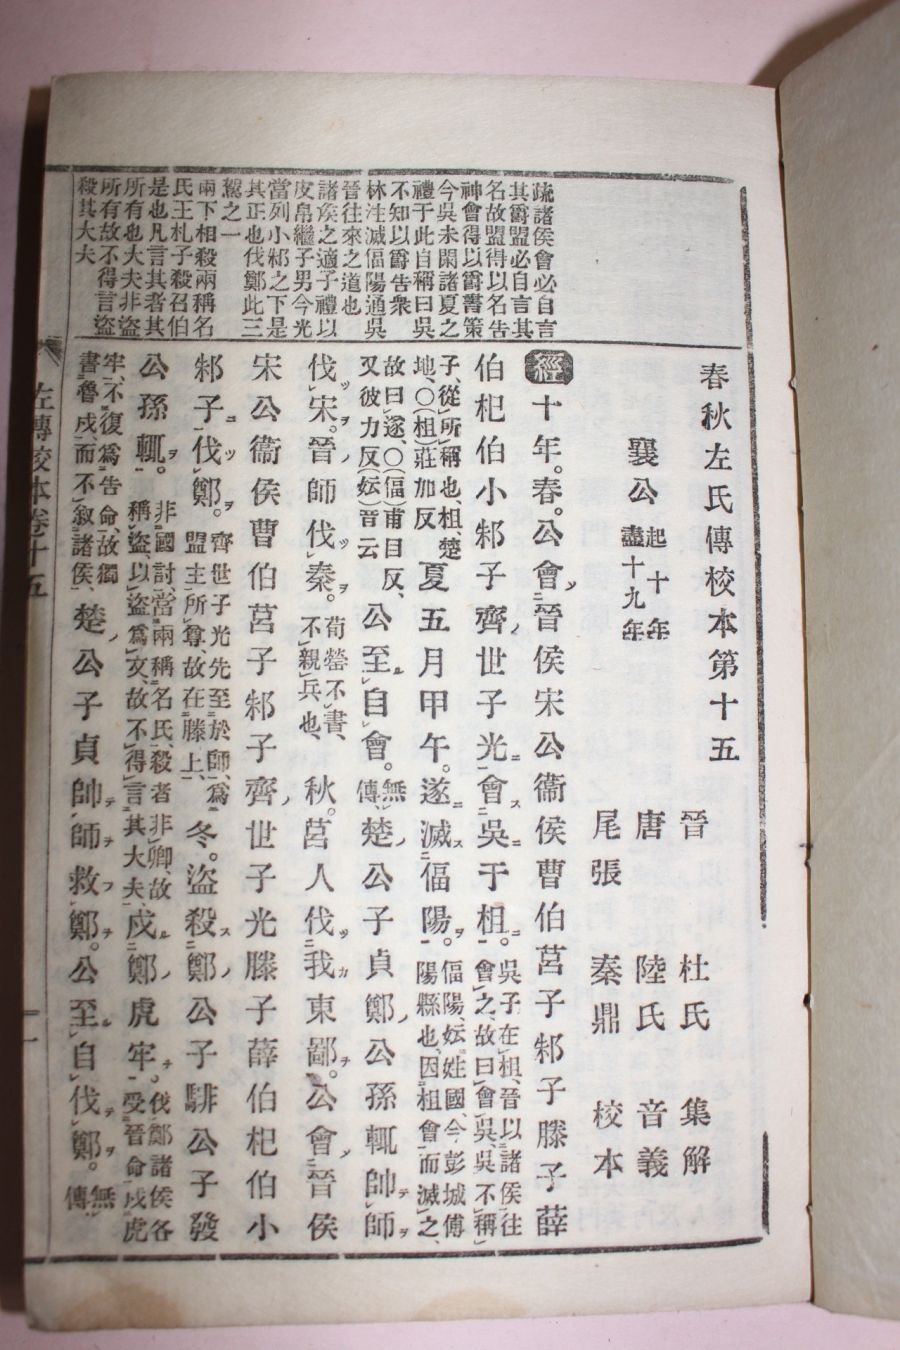 春秋左氏傳校本第十五
晉　杜氏　集解
唐　陸氏　音義
尾張　秦鼎　校本
襄公
起十年
盡十九年
經十年。春。公會晉侯宋公衞侯曹伯莒子邾子滕子薛
伯杞伯小邾子齊世子光會吳于柤。吳子在柤、晉以諸侯往
會之、故曰會吳、吳不稱
子、從所稱也、柤、楚
地、○(柤)莊加反夏五月甲午。遂滅偪陽。偪陽、妘姓國、今彭城傅
陽縣也、因柤會而滅之、
故曰遂、○(偪)甫目反、
又彼力反(妘)晉云公至自會。無
傳楚公子貞鄭公孫輒帥師
伐宋。晉師伐秦。荀罃不書、
不親兵也、秋。莒人伐我東鄙。公會晉侯
宋公衞侯曹伯莒子邾子齊世子光滕子薛伯杞伯小
邾子伐鄭。齊世子光先至於師、爲
盟主所尊、故在滕上、冬。盜殺鄭公子騑公子發
公孫輒。非國討、當兩稱名氏、殺者非卿、故
稱盜、以盜爲文、故不得言其大夫、戍鄭虎牢。伐鄭諸侯各
受晉命戍虎
牢、不復爲告命、故獨
書魯戍、而不敘諸侯、楚公子貞帥師救鄭。公至自伐鄭。無
傳
疏諸侯會必自言
其爵盟必自言其
名故盟得以名告
神會得以爵書策
今吳未閑諸夏之
禮于此自稱曰吳
不知以爵告衆
林注滅偪陽通吳
晉往來之道也
諸侯之適子禮以
皮帛繼子男今光
當列小邾之下是
其正也伐鄭此三
駕之一
兩下相殺兩稱名
氏王札子殺召伯
是也凡言其者其
所有也大夫非盜
所有故不得言盜
殺其大夫
左傳校本卷十五
一